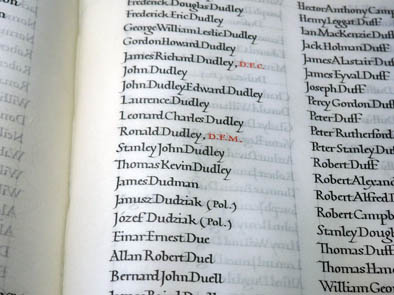 Frederick Douglas Dudley
Frederick Eric Dudley
George William Leslie Dudley
Gordon Howard Dudley
James Richard Dudley, D.F.C.
John Dudley
John Dudley Edward Dudley
Laurence Dudley
Leonard Charles Dudley
Ronald Dudley, D.F.M.
Stanley John Dudley
Thomas Kevin Dudley
James Dudman
Janusz Dudziak (Pol.)
Józef Dudziak (Pol.)
Einar Ernest Due
Allan Robert Duel
Bernard John Duell
Hector Anthony
Henry Leggat Duff
Ian MacKenzie Duff
Jack Holman Duff
James Alastair Duff
James Fyval Duff
Joseph Duff
Percy Gordon Duff
Peter Duff
Peter Rutherford
Peter Stanley Duf
Robert Duff
Robert
Robert Alfred
Robert
Stanley
Thomas Duff
Thomas
William